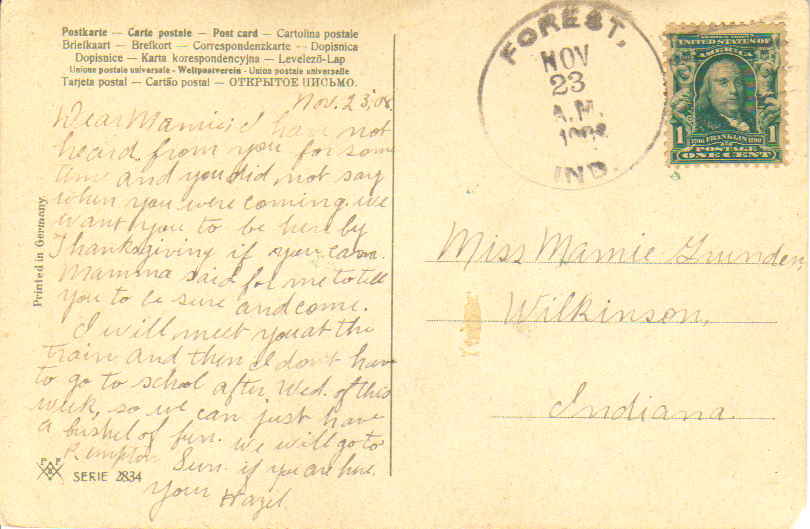 Postkarte — Carte postale — Post card — Cartolina postale
Briefkaart — Brefkort — Correspondenzkarte — Dopisnica
Dopisnice — Karta korespondencyjna — Levelező-Lap
Unione postale universale - Weltpostverein - Union postale universelle
Tarjeta postal — Cartão postal — ОТКРЫТОЕ ПИСЬМО.
Nov. 23, '08.
Dear Mamie: I have not
heard from you for some
time and you did not say
when you were coming. we
want you to be here by
Thanksgiving if you can.
Mamma said for me to tell
you to be sure and come.
I will meet you at the
train and then I don't have
to go to school after Wed. of this
week, so we can just have
a bushel of fun. we will go to
Kempton Sun. if you are here.
Your Hazel
Printed in Germany
P F B
SERIE 2834
FOREST,
NOV
23
A.M.
1908
IND.
UNITED STATES OF
AMERICA
1 1706 FRANKLIN 1790 1
POSTAGE
ONE CENT
Miss Mamie Grunden
Wilkinson,
Indiana.